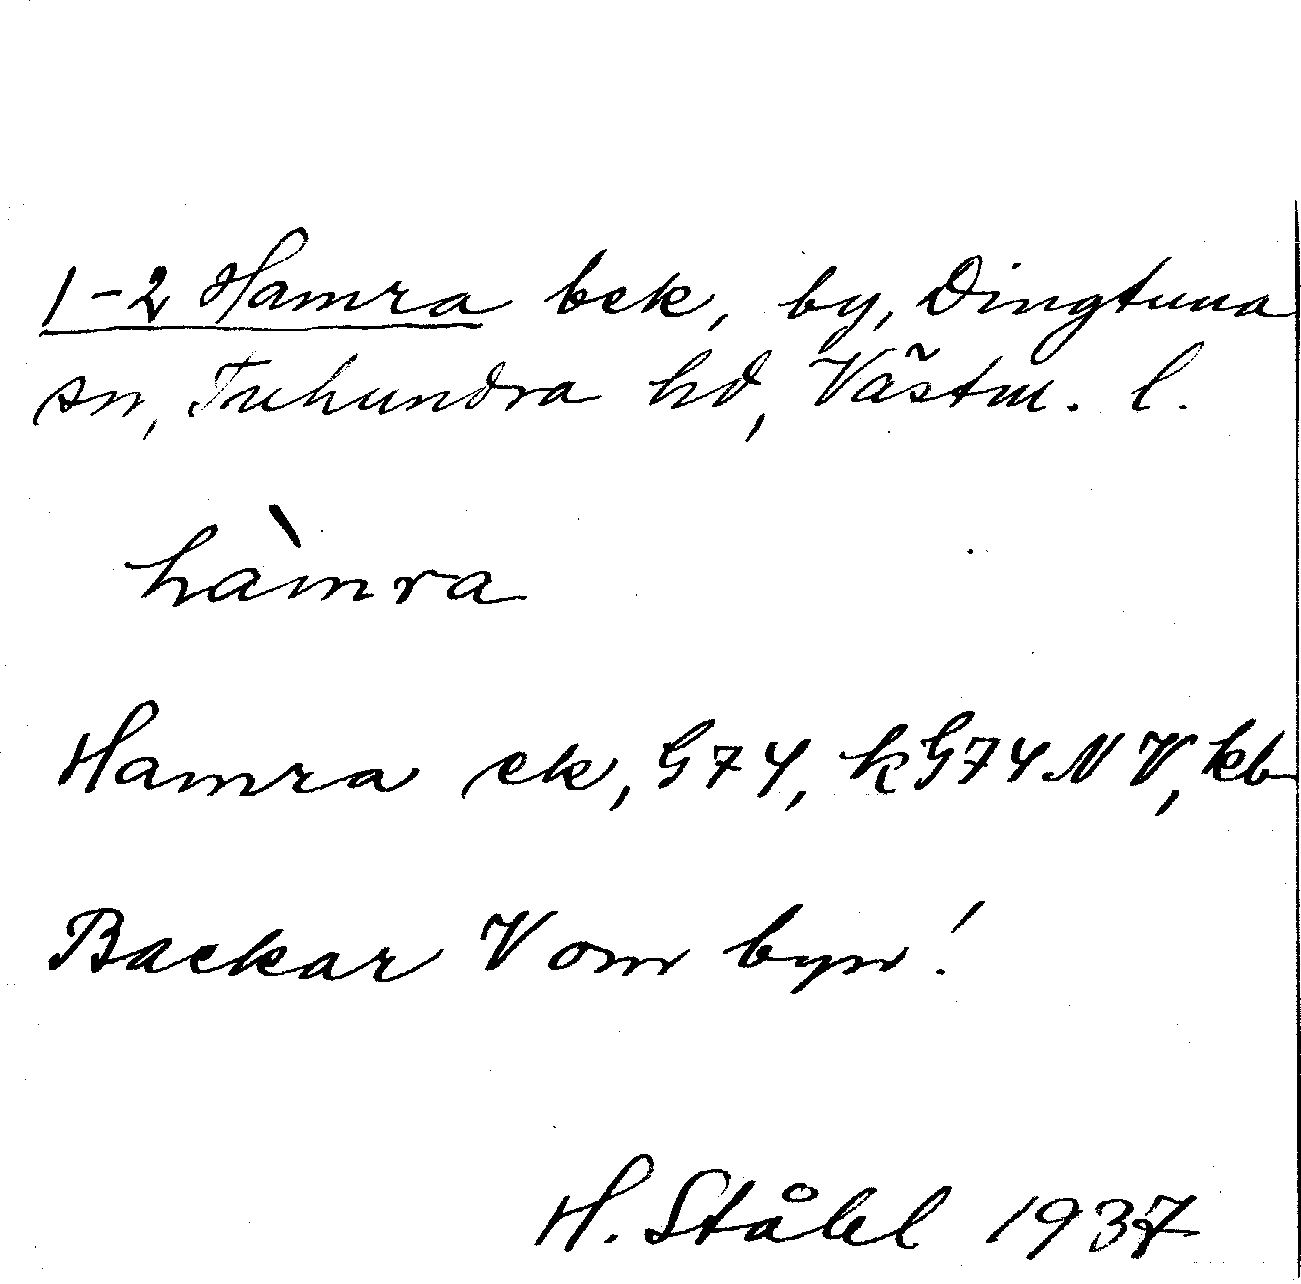 1-2 Hamra bek, by, Dingtuna
sn, Tuhundra hd, Västm. l.
hàmra
Hamra ek, G74, kG74NV, kb
Backar V om byn!
H. Ståhl 1937